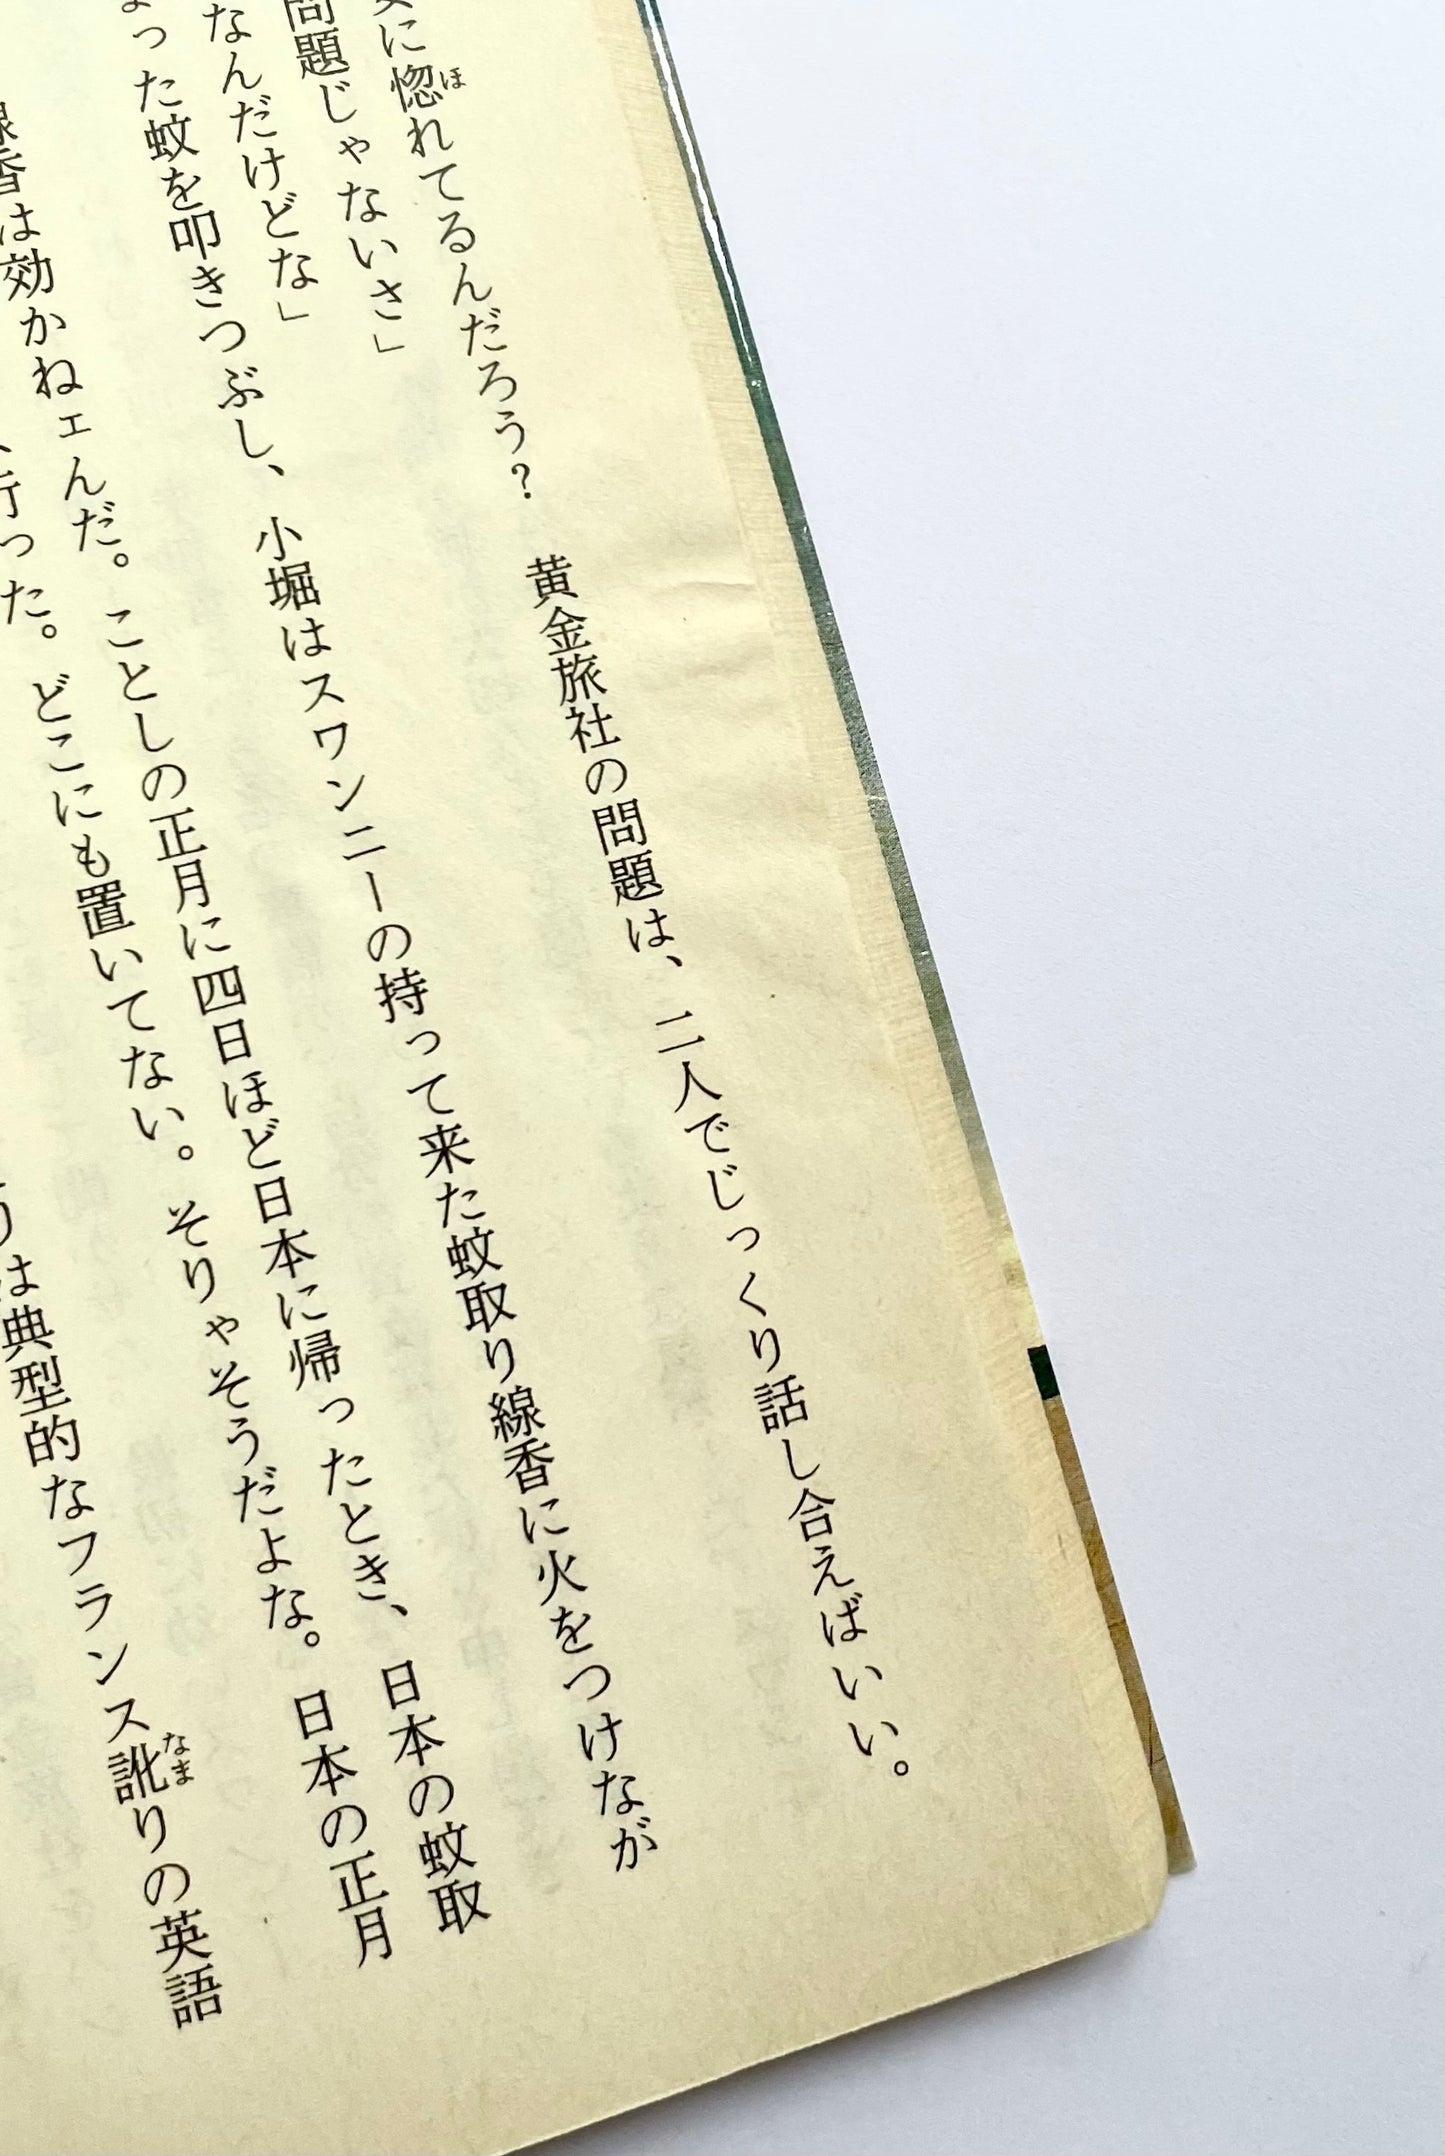 に惚れてるんだろう？　黄金旅社の問題は、二人でじっくり話し合えばいい。
問題じゃないさ」
なんだけどな」
った蚊を叩きつぶし、小堀はスワンニーの持って来た蚊取り線香に火をつけなが
線香は効かねェんだ。ことしの正月に四日ほど日本に帰ったとき、日本の蚊取
行った。どこにも置いてない。そりゃそうだよな。日本の正月
は典型的なフランス訛りの英語